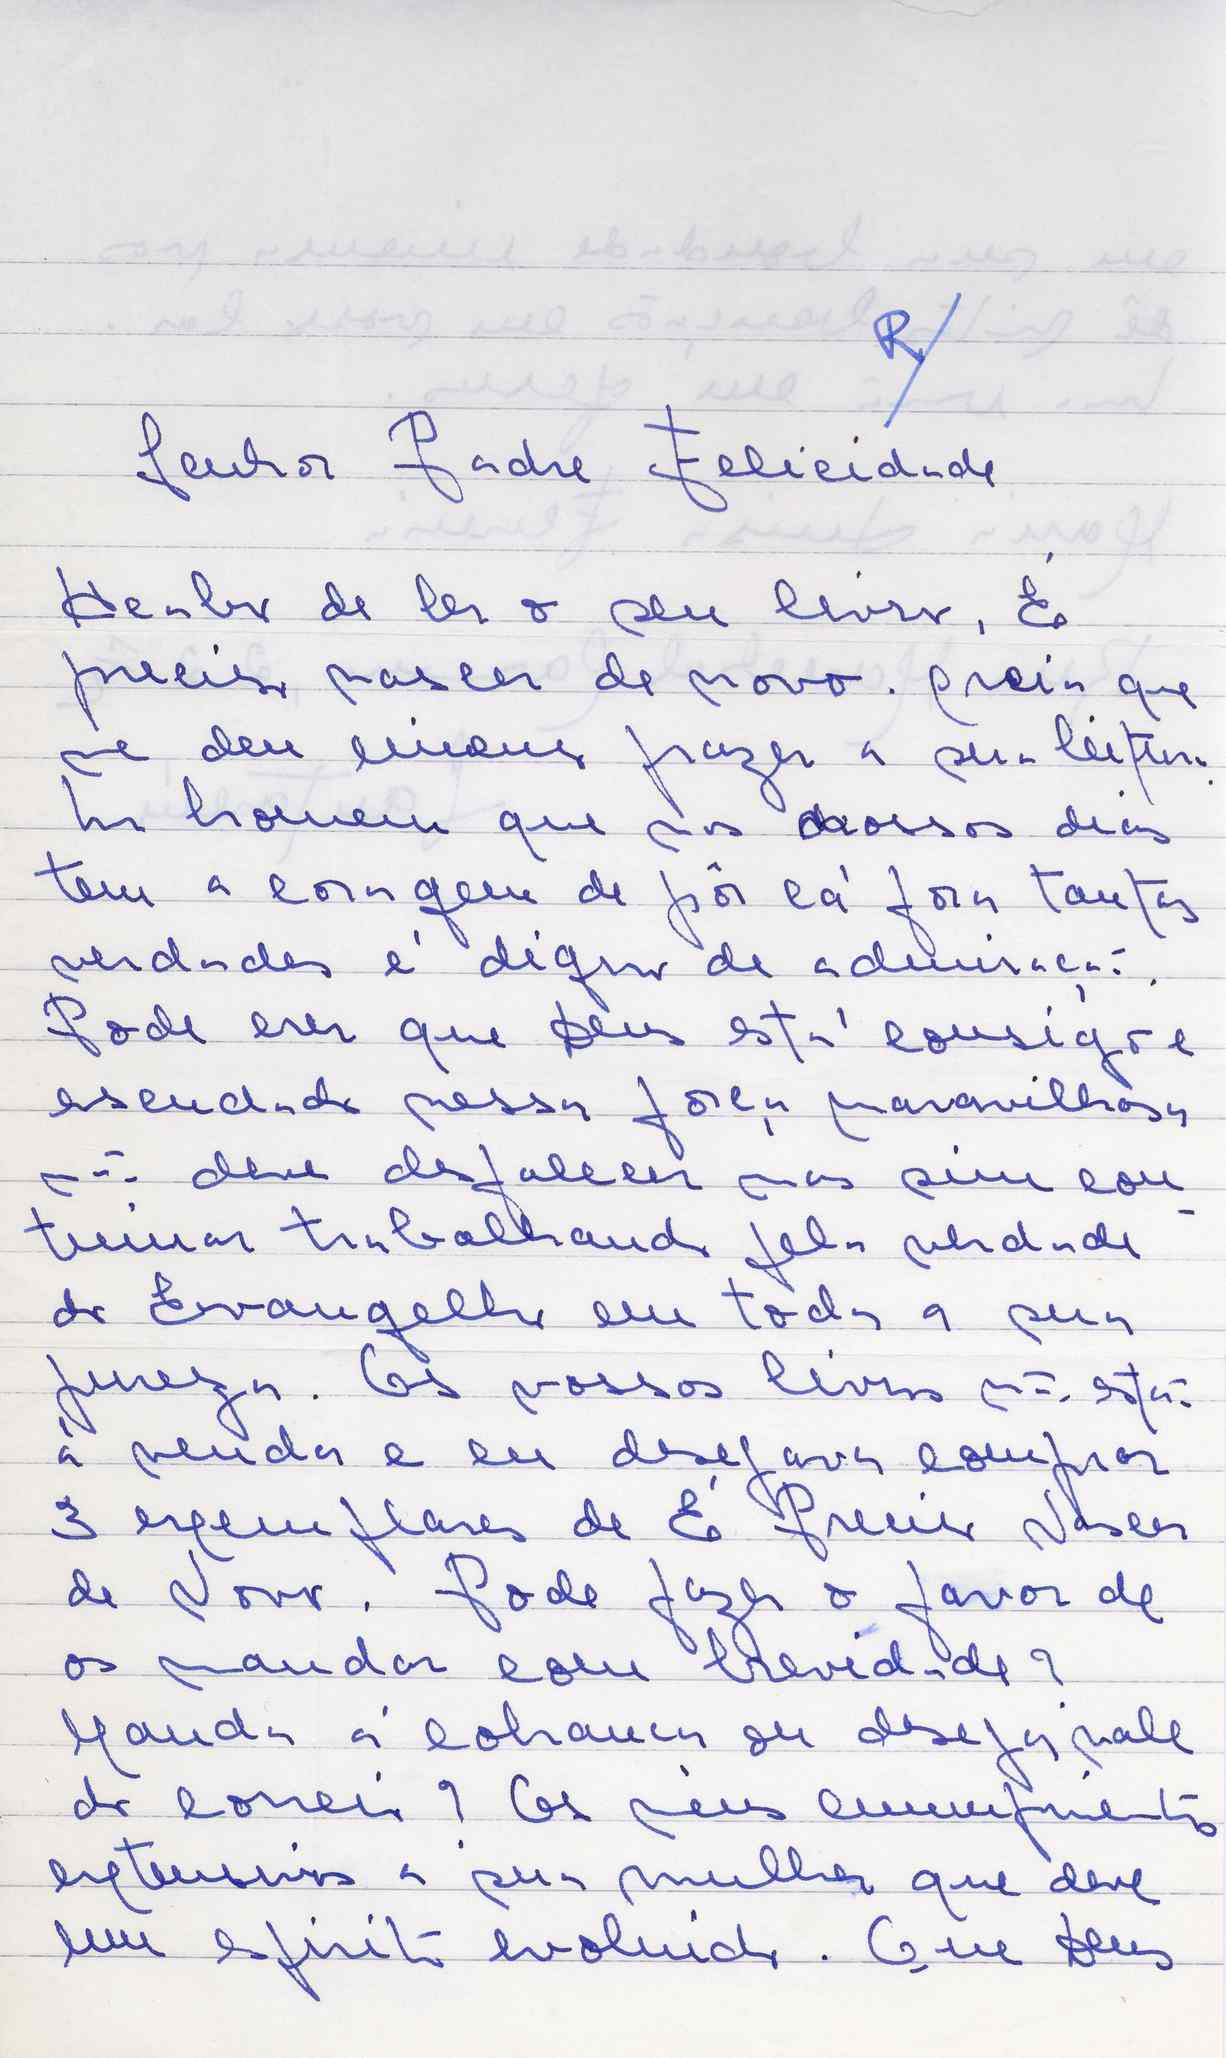 R/
Senhor Padre Felicidade
Acabo de ler o seu livro, É
preciso nascer de novo. Creia que
me deu imenso prazer a sua leitura.
Um homem que nos nossos dias
tem a coragem de pôr cá fora tantas
verdades é digno de admiração.
Pode crer que Deus está consigo e
escudado nessa força maravilhosa
não deve desfalecer mas sim con-
tinuar trabalhando pela verdade
do Evangelho em toda a sua
pureza. Os vossos livros não estão
à venda e eu desejava comprar
3 exemplares de É Preciso Nascer
de Novo. Pode fazer o favor de
os mandar com brevidade?
Manda á cobrança ou deseja vale
do correio? Os meus cumprimentos
extensivos a sua mulher que deve
um espirito evoluido. Que Deus